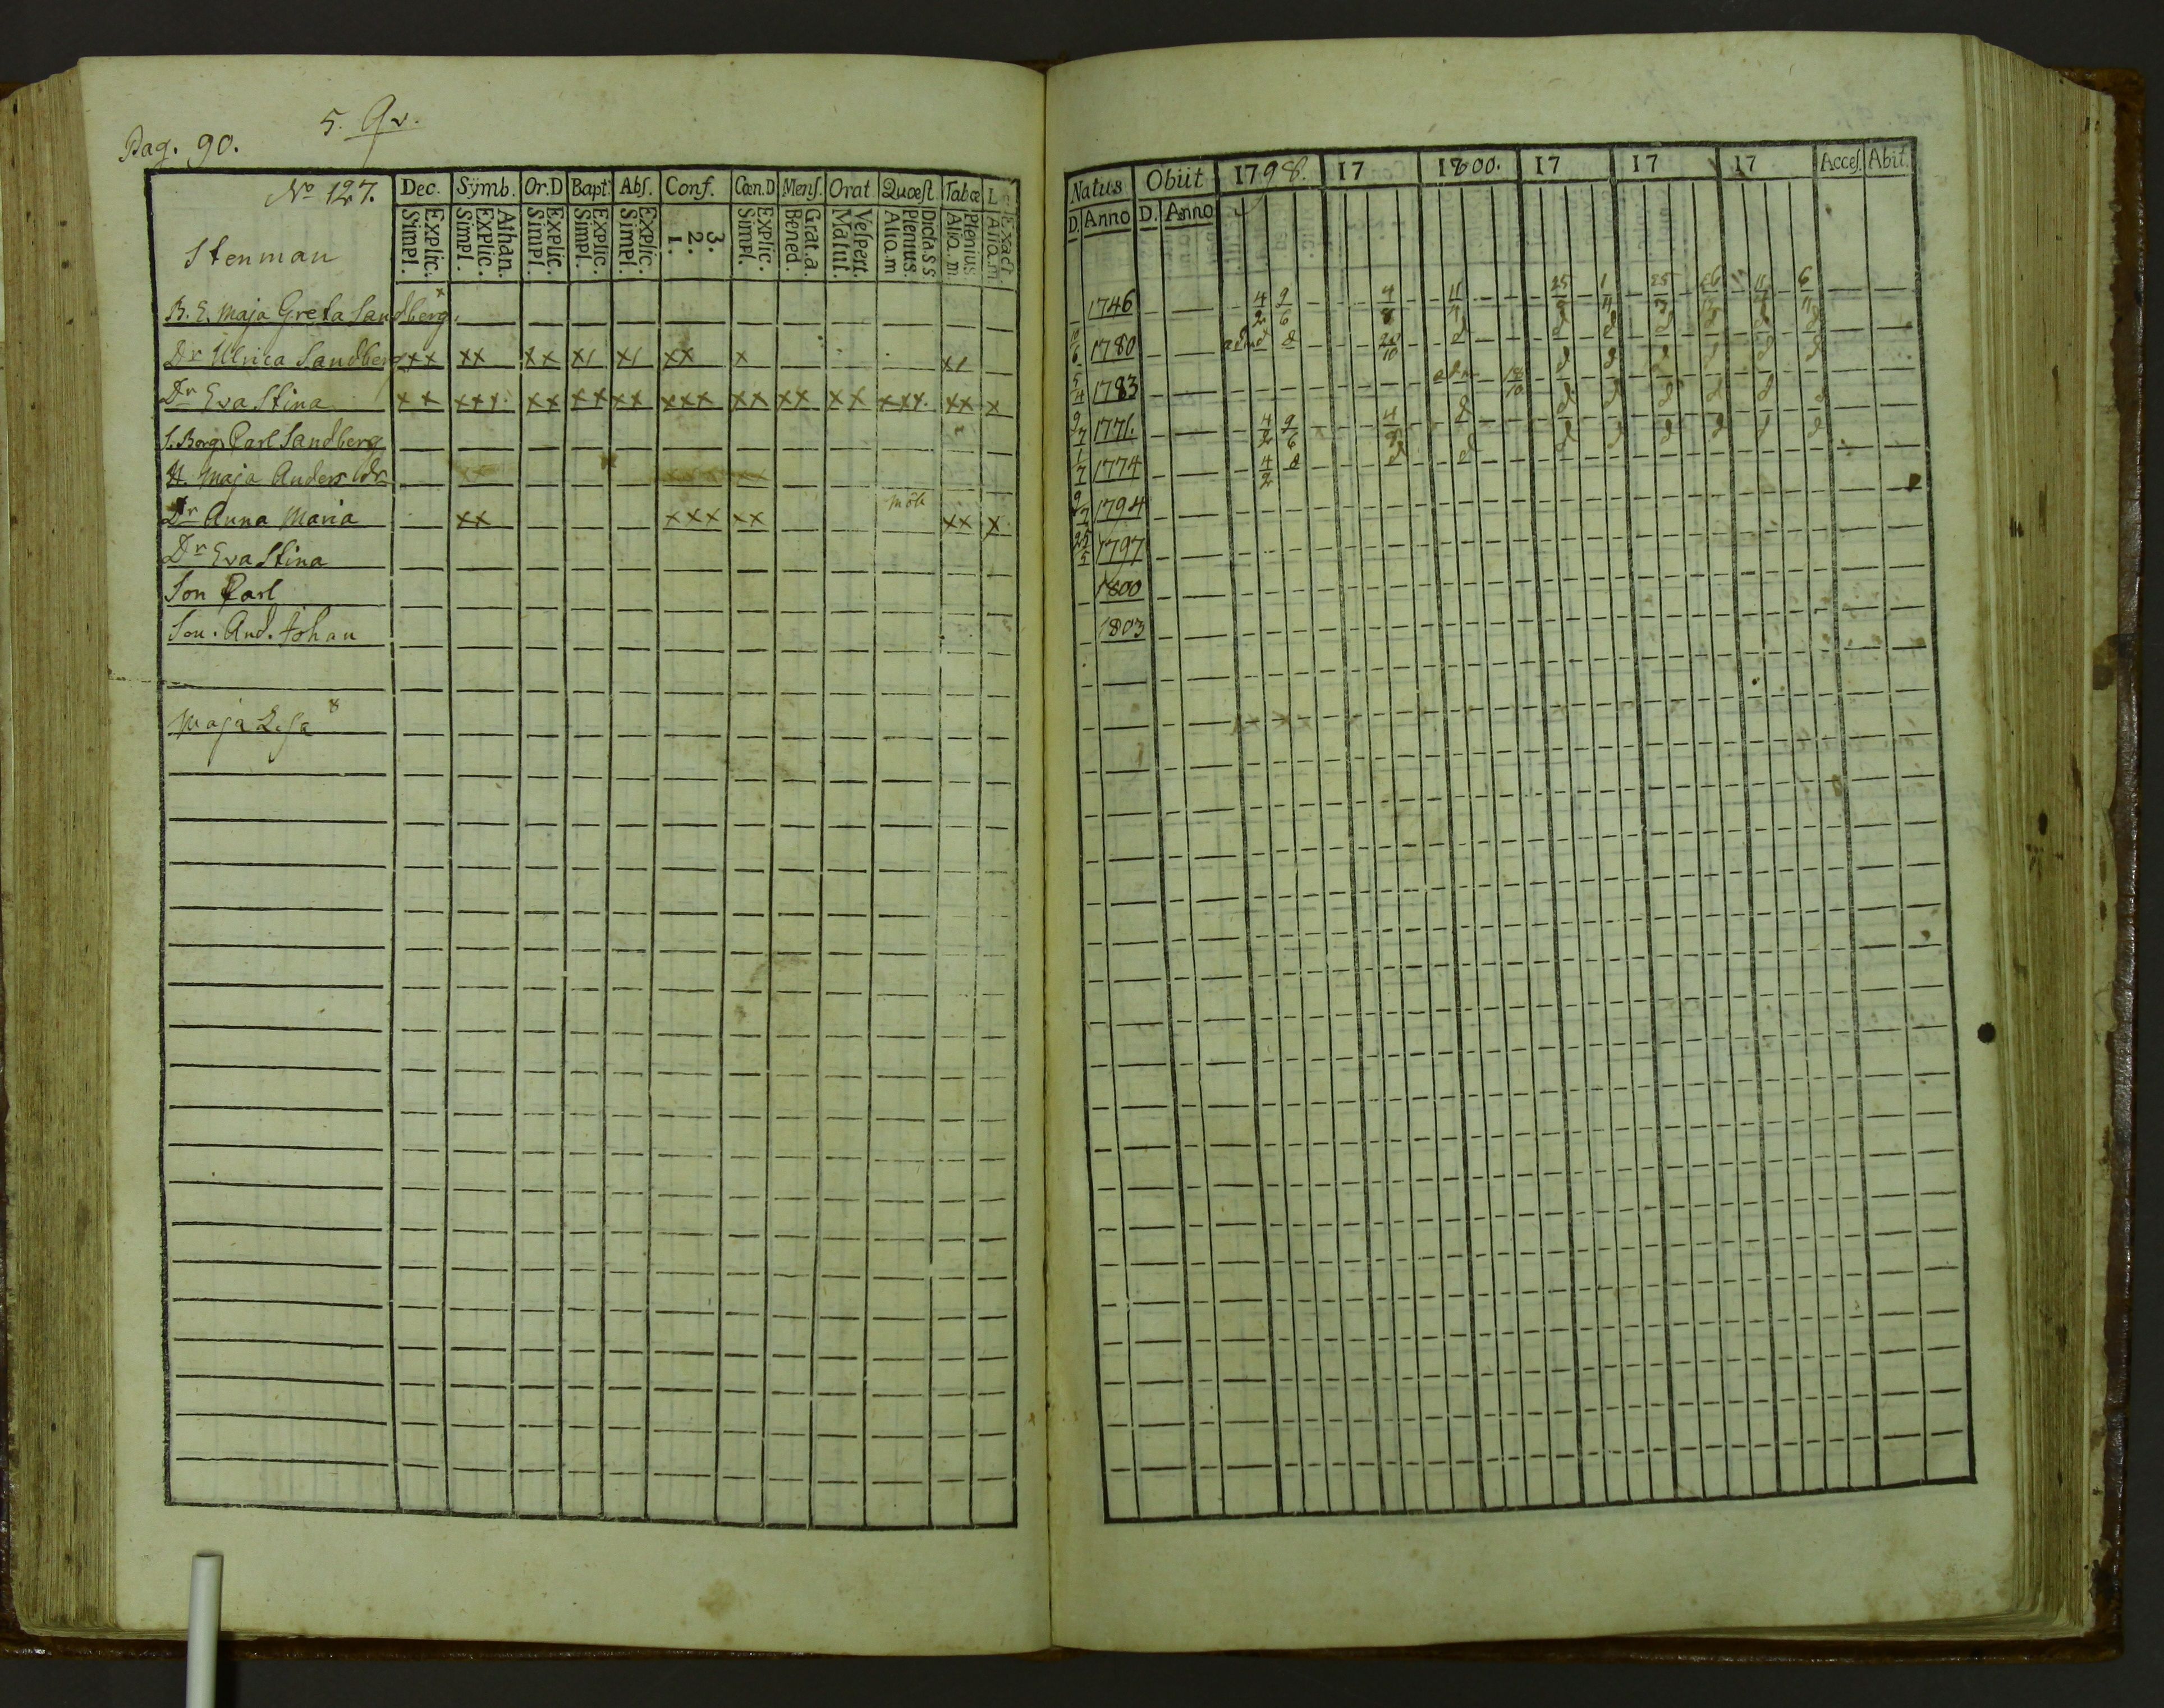 Pag. 90.
5. Qv.
No 127. Dec. Sÿmb. Or.D Bapt. Abſ. Conf. Cœn.D Menſ. Orat. Quœſt. Tabœ L
Explic. Simpl. Athan. Explic. Simpl. Explic. Simpl. Explic. Simpl. Explic. Simpl. 3. 2. 1. Explic. Simpl. Grat.a. Bened. Veſpert. Matut. Dicta S S Plenius. Aliq.m Plenius Aliq.m Exact Aliq.m
Stenman
B. E. Maja Greta Sandberg. x
Dr Ulrica Sandberg xx xx xx x/ x/ xx x x/
Dr Eva Stina xx xxx xx xx xx xxx xx xx xx xxx. xx x
S. Borg. Carl Sandberg
H. Maja Anders dr
Dr Anna Maria xx xxx xx xx x
Dr Eva Stina
Son Carl
Son. And. Johan
Maja Lisa 8
Natus Obiit 1798. 17 1800. 17 17 17 Acceſ. Abiit.
D. Anno D. Anno
1746 4/2 9/6 4/8 11/4 25/2 1/11 6/11
1780
5/4 1783
9/7 1771. 4/2 9/6
1/7 1774 4/2
9/7 1794
25/5 1797
1800
1803